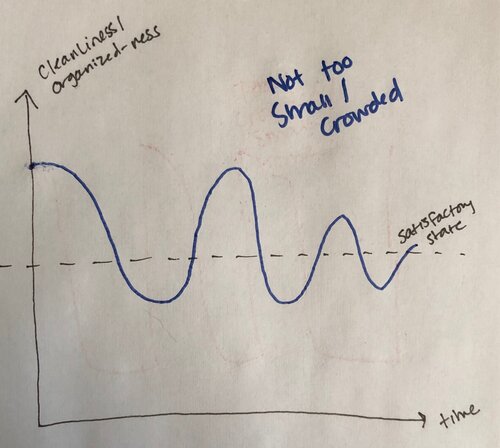 Cleanliness/
Organized-ness
Not too
Small/
Crowded
satisfactory
state
time